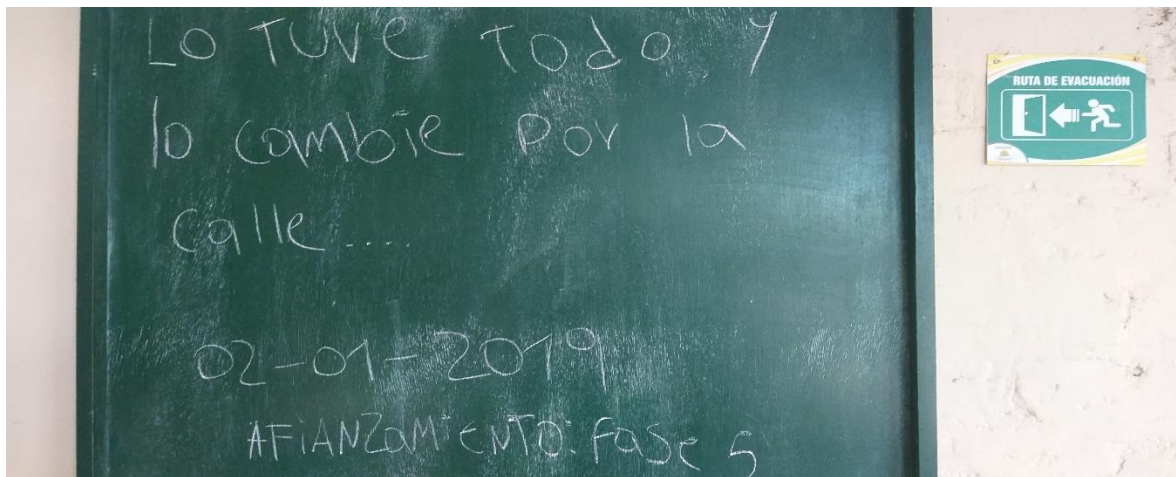 Lo TUVe Todo y
lo cambie por la
calle....
02-01-2019
AFiANZaMieNTO: fase 5
RUTA DE EVACUACIÓN